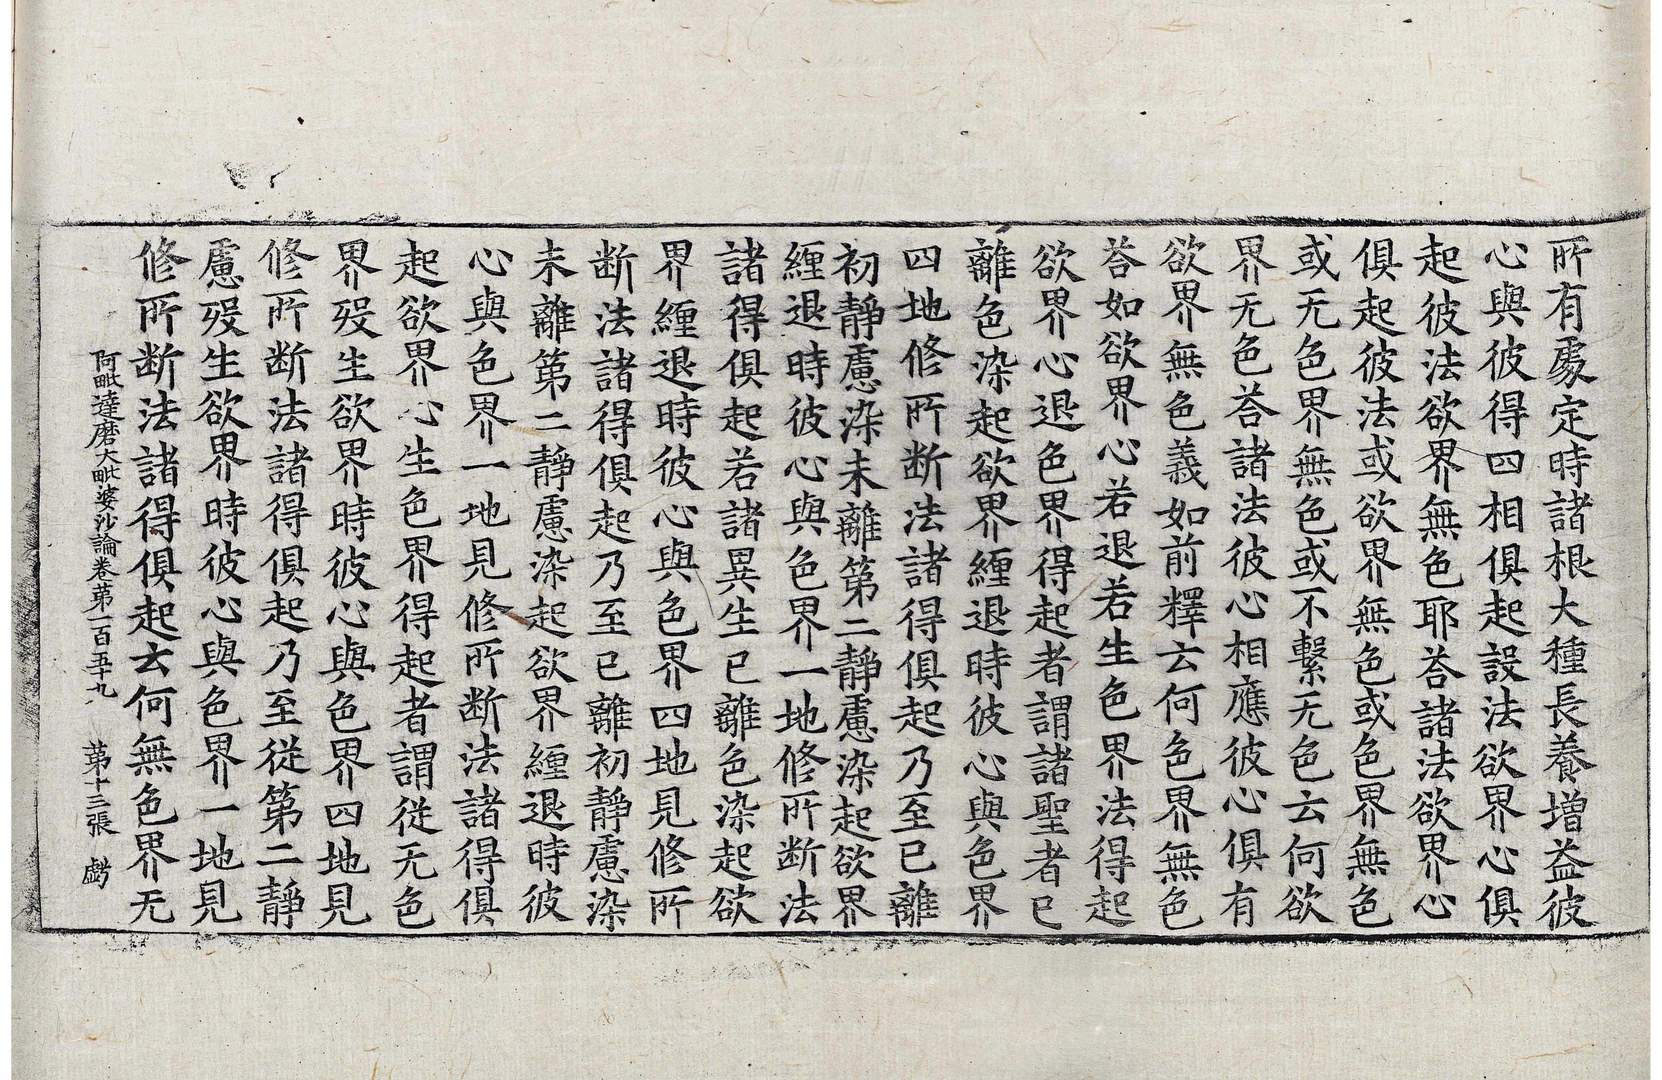 所有處定時諸根大種長養增益彼
心與彼得四相俱起設法欲界心俱
起彼法欲界無色耶荅諸法欲界心
俱起彼法或欲界無色或色界無色
或无色界無色或不繫无色云何欲
界无色荅諸法彼心相應彼心俱有
欲界無色義如前釋云何色界無色
荅如欲界心若退若生色界法得起
欲界心退色界得起者謂諸聖者已
離色染起欲界纏退時彼心與色界
四地修所断法諸得俱起乃至已離
初靜慮染未離第二靜慮染起欲界
纏退時彼心與色界一地修所断法
諸得俱起若諸異生已離色染起欲
界纏退時彼心與色界四地見修所
断法諸得俱起乃至已離初靜慮染
未離第二靜慮染起欲界纏退時彼
心與色界一地見修所断法諸得俱
起欲界心生色界得起者謂從无色
界歿生欲界時彼心與色界四地見
修所断法諸得俱起乃至從第二靜
慮歿生欲界時彼心與色界一地見
修所断法諸得俱起云何無色界无
阿毗達磨大毗婆沙論卷第一百五十九 第十三張 虧